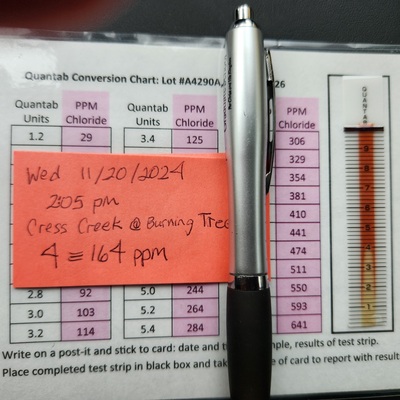 Quantab Conversion Chart: Lot #A4290A, 26
Quantab Units PPM Chloride Quantab Units PPM Chloride PPM Chloride
1.2 29 3.4 125 306
329
354
381
410
441
474
511
Wed 11/20/2024
2:05 pm
Cress Creek @ Burning Tree
4 ≡ 164 ppm
2.8 92 5.0 244 550
3.0 103 5.2 264 593
3.2 114 5.4 284 641
QUANTAB
9
8
7
6
5
4
3
2
1
Write on a post-it and stick to card: date and t mple, results of test strip.
Place completed test strip in black box and tak e of card to report with result